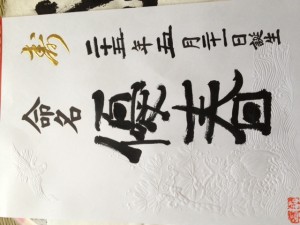 寿
二十五年五月二十一日誕生
命名 優春